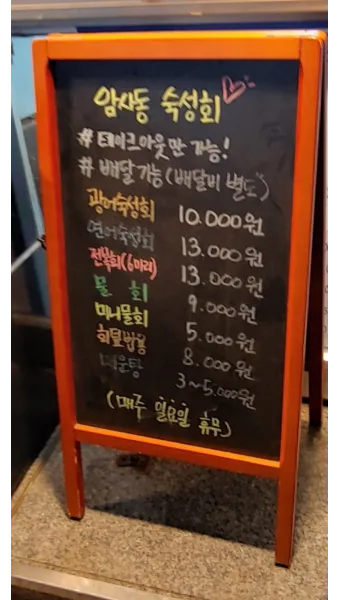 암사동 숙성회
# 테이크아웃만 가능!
# 배달가능(배달비 별도)
광어숙성회 10.000원
연어숙성회 13.000원
전복회(6마리) 13.000원
물 회 9.000원
미니물회 5.000원
회덮밥용 8.000원
매운탕 3~5.000원
(매주 일요일 휴무)